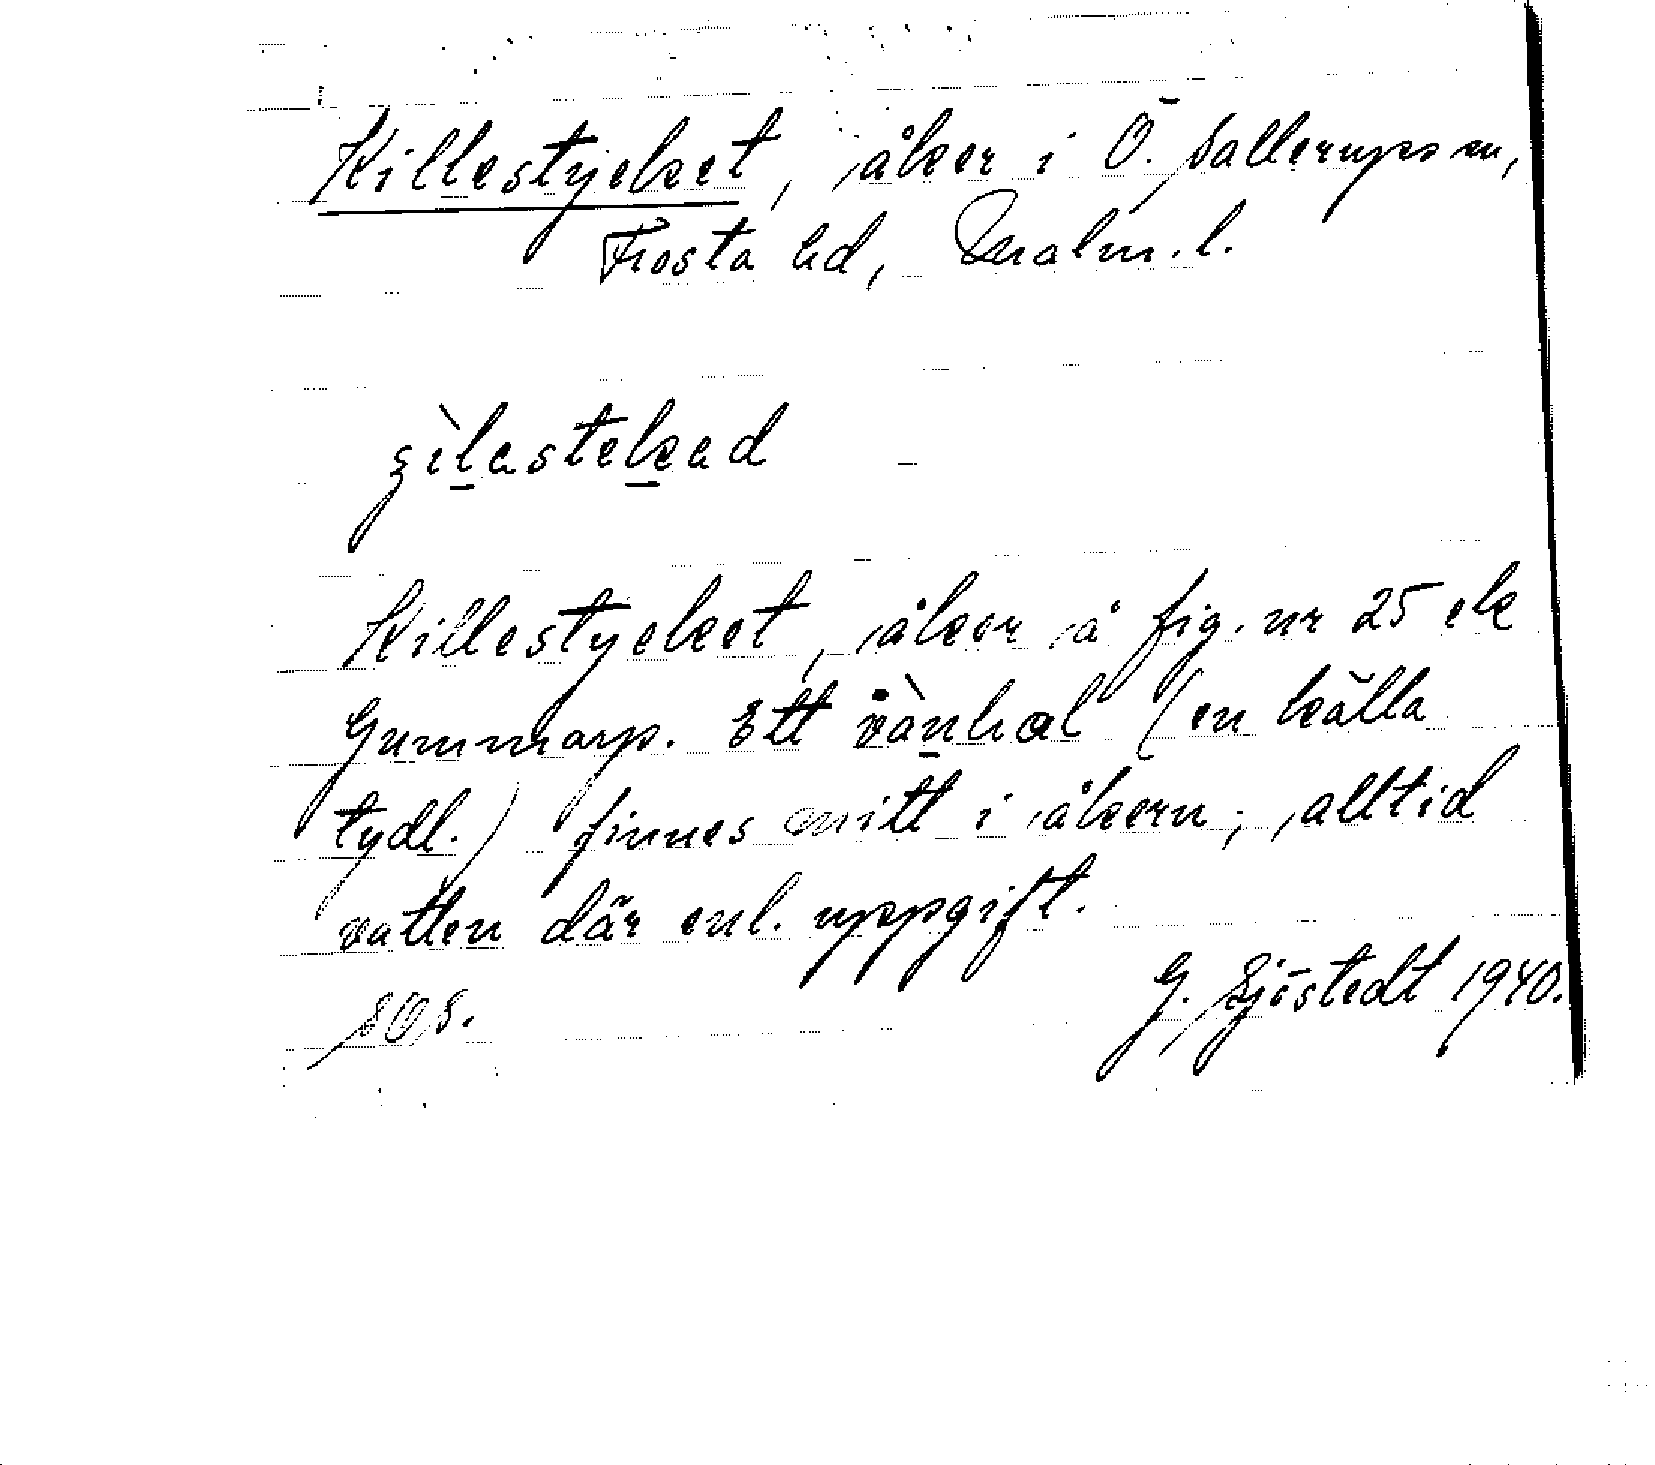 Killestycket, åker i Ö. Sallerups sn,
Frosta hd, Malm. l.
Killestycket, åker å fig. nr 25 ek
Gummarp. Ett vànhɑl (en källa
tydl.) finnes mitt i åkern; alltid
vatten där enl. uppgift.
G. Sjöstedt 1940.